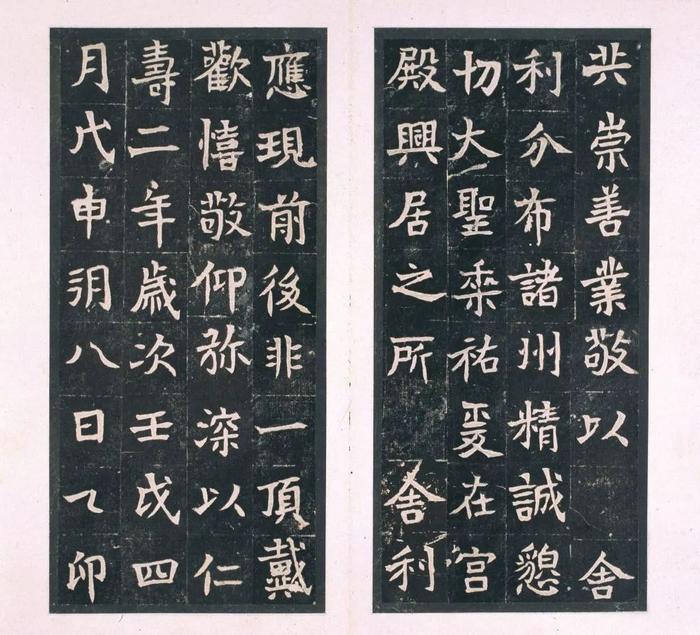 共崇善業敬以　舍
利分布諸州精誠懇
切大聖垂祐爰在宮
殿興居之所　舍利
應現前後非一頂戴
歡憘敬仰弥深以仁
壽二年歲次壬戌四
月戊申朔八日乙卯